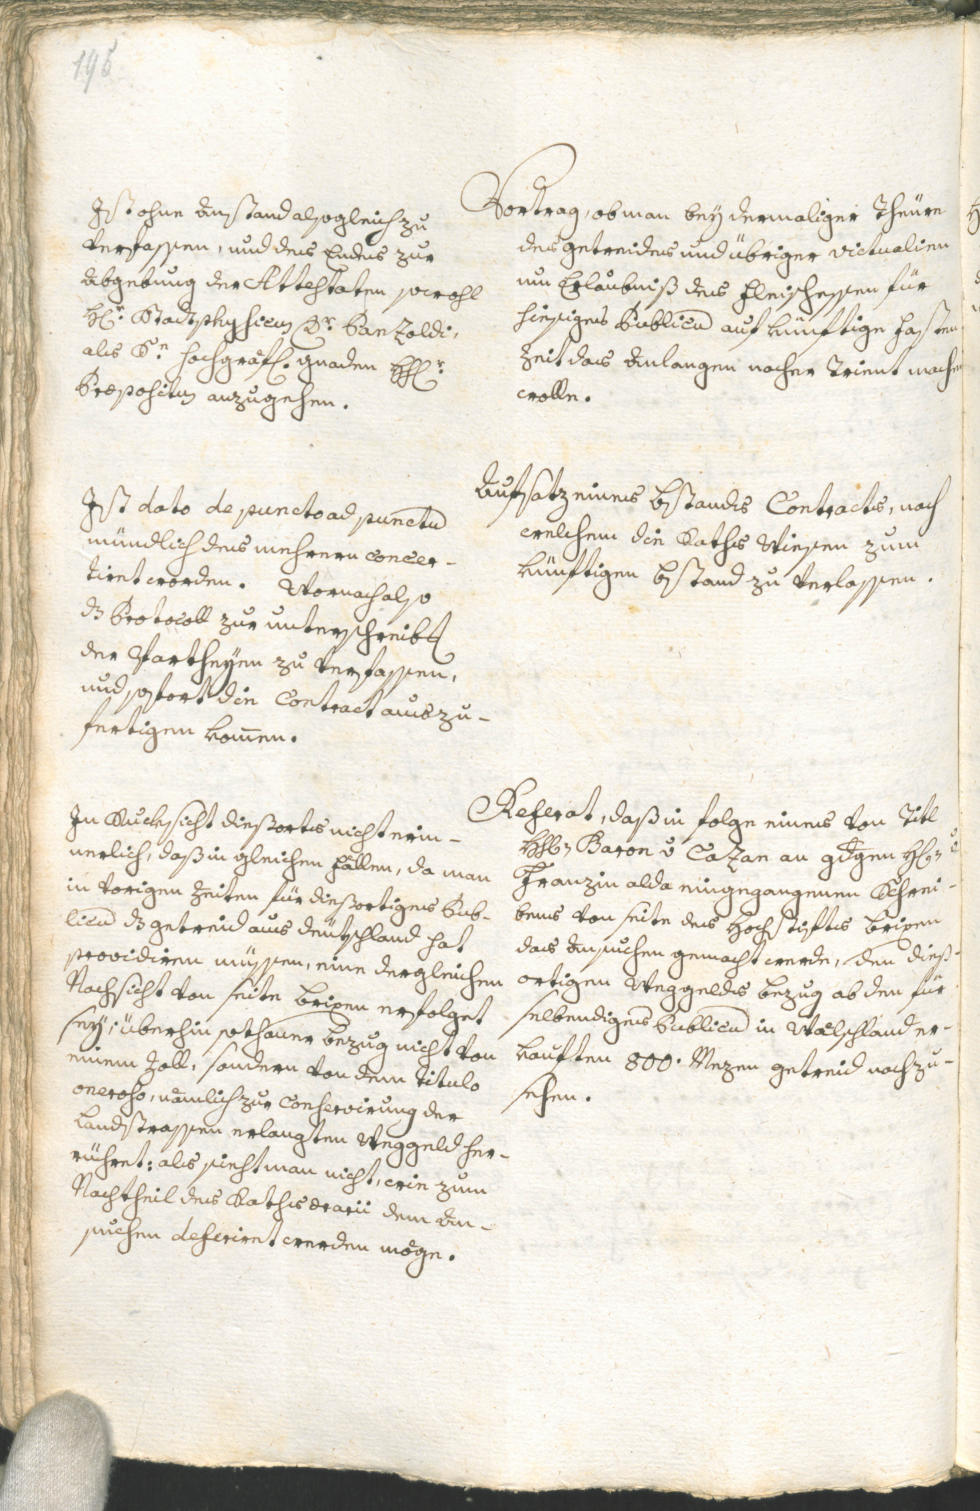 195
Vortrag, ob man bey dermaliger Theüre
des getreides und übriger victualien
um Erlaubniß des Fleischessen für
hiesiges Publicu auf künftige Fasten
Zeit das Anlangen nacher Trient machen
wolle.
Ist ohne Anstand alsogleich zu
verfassen, und des Endes zur
Abgebung der Attestaten sowohl
H: Stadtphysicus Dr. Panzoldi,
als Sr. hochgräfl. gnaden
Præpositus anzugehen.
Aufsatz eines bstands Contracts, nach
welchem die Raths Wiesen zum
künftigen bstand zu verlassen.
Ist dato de puncto ad punctu
mündlich des mehrern concer-
tiret worden. Wornach also
dz Protocoll zur unterschreibg
der Partheyen zu verfassen,
und sofort die Contract auszu-
fertigen komen.
Referat, daß in folge eines von Titl
Baron v Cazan an gdgen
Franzin alda eingegangenen Schrei-
bens von seite des Hochstifts brixen
das Ansuchen gemacht werde, den dieß-
ortigen Weggelds bezug ab den für
selbendiges Publicu in Wälschland er-
kauften 800. Mezen getreid nachzu-
sehen.
In Rucksicht dießorts nicht erin-
nerlich, daß in gleichen Fällen, da man
in vorigen Zeiten für dießortiges Pub-
licu dz getreid aus deütschland hat
providiren müssen, eine dergleichen
Nachsicht von seite brixen erfolget
sey; überhin sothaner bezug nicht von
einem Zoll, sondern von dem titulo
oneroso, nämlich zur Conservirung der
Landstrassen erlangten Weggeld her-
rühret: als sieht man nicht, wie zum
Nachtheil des Raths ærarii dem An-
suchen deferiret werden möge.